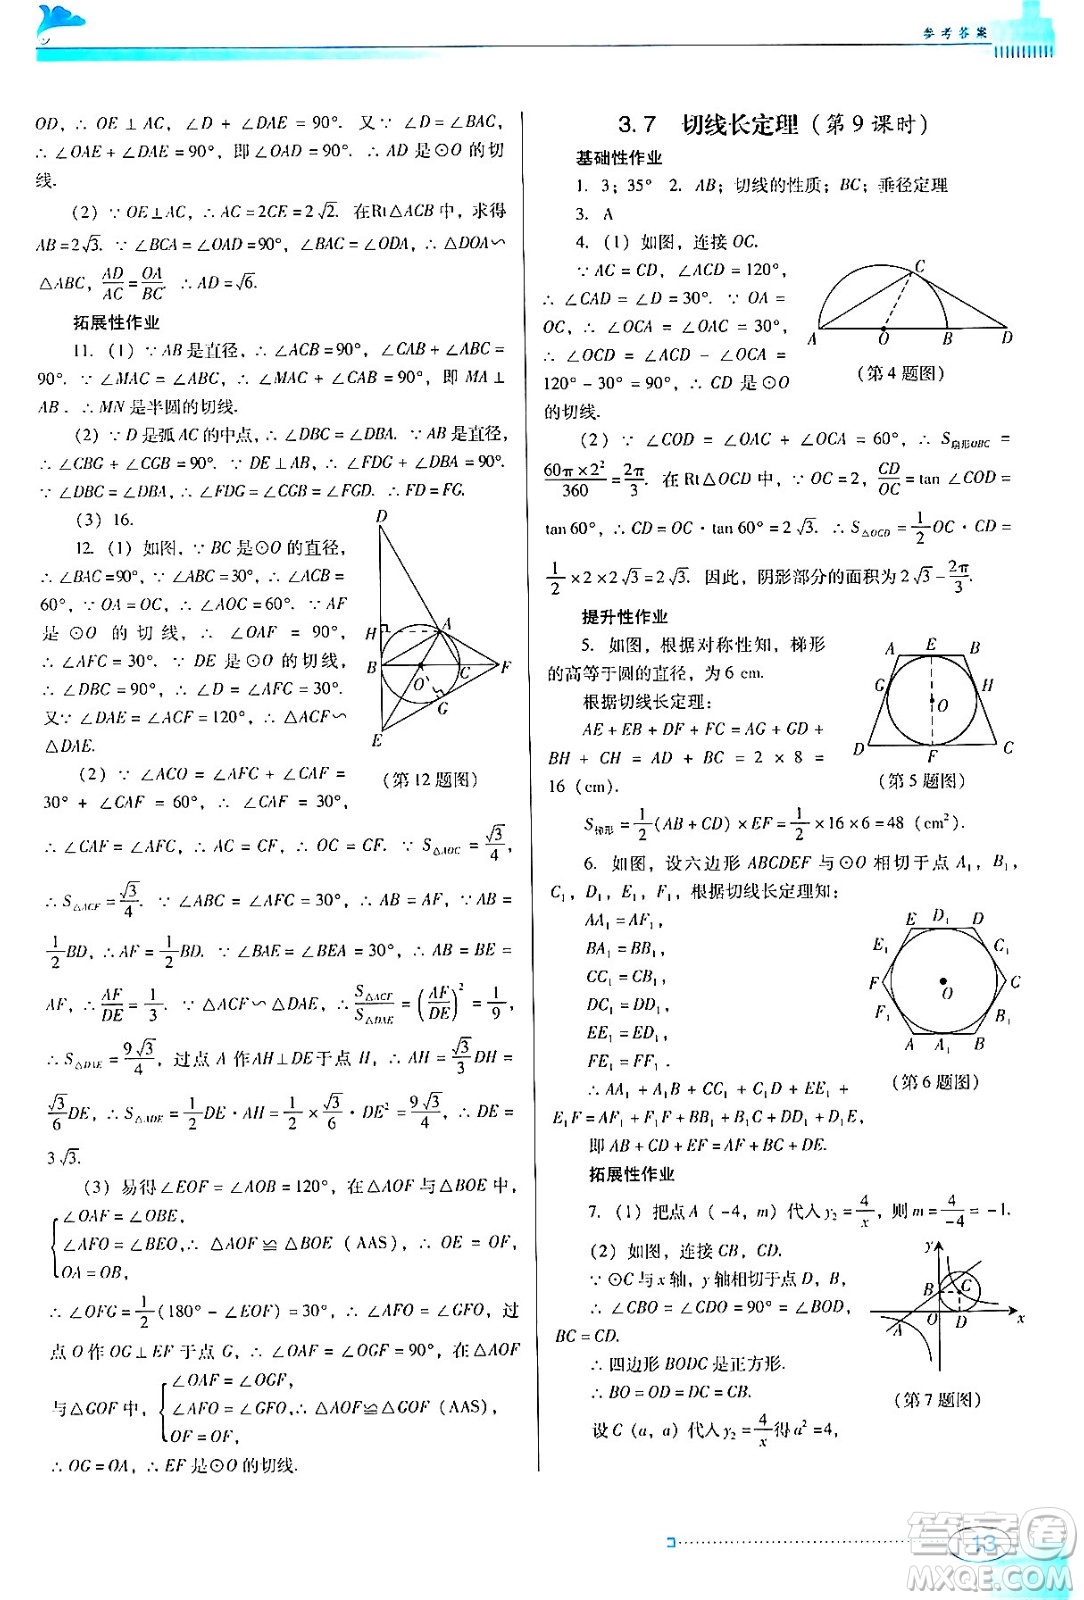 参考答案
OD, ∴ OE⊥AC, ∠D+∠DAE=90°. 又∵ ∠D=∠BAC,
∴ ∠OAE+∠DAE=90°, 即∠OAD=90°. ∴ AD 是⊙O 的切
线.
(2) ∵ OE⊥AC, ∴ AC=2CE=2√2. 在Rt△ACB 中, 求得
AB=2√3. ∵ ∠BCA=∠OAD=90°, ∠BAC=∠ODA, ∴ △DOA∽
△ABC, AD/AC=OA/BC. ∴ AD=√6.
拓展性作业
11. (1) ∵ AB 是直径, ∴ ∠ACB=90°, ∠CAB+∠ABC=
90°. ∵ ∠MAC=∠ABC, ∴ ∠MAC+∠CAB=90°, 即 MA⊥
AB. ∴ MN 是半圆的切线.
(2) ∵ D 是弧 AC 的中点, ∴ ∠DBC=∠DBA. ∵ AB 是直径,
∴ ∠CBG+∠CGB=90°. ∵ DE⊥AB, ∴ ∠FDG+∠DBA=90°.
∵ ∠DBC=∠DBA, ∴ ∠FDG=∠CGB=∠FGD. ∴ FD=FG.
(3) 16.
12. (1) 如图, ∵ BC 是⊙O 的直径,
∴ ∠BAC=90°, ∵ ∠ABC=30°, ∴ ∠ACB=
60°, ∵ OA=OC, ∴ ∠AOC=60°. ∵ AF
是 ⊙O 的切线, ∴ ∠OAF=90°,
∴ ∠AFC=30°. ∵ DE 是⊙O 的切线,
∴ ∠DBC=90°, ∴ ∠D=∠AFC=30°.
又∵ ∠DAE=∠ACF=120°, ∴ △ACF∽
△DAE.
D
H
A
B
O
C
F
G
E
(第12题图)
(2) ∵ ∠ACO=∠AFC+∠CAF=
30°+∠CAF=60°, ∴ ∠CAF=30°,
∴ ∠CAF=∠AFC, ∴ AC=CF, ∴ OC=CF. ∵ S△AOC=√3/4,
∴ S△ACF=√3/4. ∵ ∠ABC=∠AFC=30°, ∴ AB=AF, ∵ AB=
1/2BD, ∴ AF=1/2BD. ∵ ∠BAE=∠BEA=30°, ∴ AB=BE=
AF, ∴ AF/DE=1/3. ∵ △ACF∽△DAE, ∴ S△ACF/S△DAE=(AF/DE)²=1/9,
∴ S△DAE=9√3/4, 过点 A 作AH⊥DE于点 H, ∴ AH=√3/3DH=
√3/6DE, ∴ S△ADE=1/2DE·AH=1/2×√3/6·DE²=9√3/4, ∴ DE=
3√3.
(3) 易得∠EOF=∠AOB=120°, 在△AOF 与△BOE 中,
∠OAF=∠OBE,
∠AFO=∠BEO, ∴ △AOF≌△BOE (AAS), ∴ OE=OF,
OA=OB,
∴ ∠OFG=1/2(180°-∠EOF)=30°, ∴ ∠AFO=∠GFO, 过
点 O 作 OG⊥EF 于点 G, ∴ ∠OAF=∠OGF=90°, 在△AOF
与△GOF 中,
∠OAF=∠OGF,
∠AFO=∠GFO, ∴ △AOF≌△GOF (AAS),
OF=OF,
∴ OG=OA, ∴ EF 是⊙O 的切线.
3.7 切线长定理(第9课时)
基础性作业
1. 3; 35° 2. AB; 切线的性质; BC; 垂径定理
3. A
4. (1) 如图, 连接 OC.
∵ AC=CD, ∠ACD=120°,
∴ ∠CAD=∠D=30°. ∵ OA=
OC, ∴ ∠OCA=∠OAC=30°.
∴ ∠OCD=∠ACD-∠OCA=
120°-30°=90°. ∴ CD 是⊙O
的切线.
C
A
O
B
D
(第4题图)
(2) ∵ ∠COD=∠OAC+∠OCA=60°, ∴ S扇形OBC=
60π×2²/360=2π/3. 在 Rt△OCD 中, ∵ OC=2, CD/OC=tan∠COD=
tan60°, ∴ CD=OC·tan60°=2√3. ∴ S△OCD=1/2OC·CD=
1/2×2×2√3=2√3. 因此, 阴影部分的面积为2√3-2π/3.
提升性作业
5. 如图, 根据对称性知, 梯形
的高等于圆的直径, 为6 cm.
根据切线长定理:
AE+EB+DF+FC=AG+GD+
BH+CH=AD+BC=2×8=
16 (cm).
A
E
B
G
H
O
D
F
C
(第5题图)
S梯形=1/2(AB+CD)×EF=1/2×16×6=48 (cm²).
6. 如图, 设六边形 ABCDEF 与⊙O 相切于点 A₁, B₁,
C₁, D₁, E₁, F₁, 根据切线长定理知:
AA₁=AF₁,
BA₁=BB₁,
CC₁=CB₁,
DC₁=DD₁,
EE₁=ED₁,
FE₁=FF₁.
E
D₁
D
E₁
C₁
F
C
O
F₁
B₁
A
A₁
B
(第6题图)
∴ AA₁+A₁B+CC₁+C₁D+EE₁+
E₁F=AF₁+F₁F+BB₁+B₁C+DD₁+D₁E,
即 AB+CD+EF=AF+BC+DE.
拓展性作业
7. (1) 把点A (-4, m) 代入y₂=4/x, 则m=4/-4=-1.
(2) 如图, 连接 CB, CD.
∵ ⊙C 与 x 轴, y 轴相切于点 D, B,
∴ ∠CBO=∠CDO=90°=∠BOD,
BC=CD.
∴ 四边形 BODC 是正方形.
∴ BO=OD=DC=CB.
设 C (a, a) 代入 y₂=4/x得 a²=4,
y
B
C
O
D
x
A
(第7题图)
13
答案圈
MXQE.COM